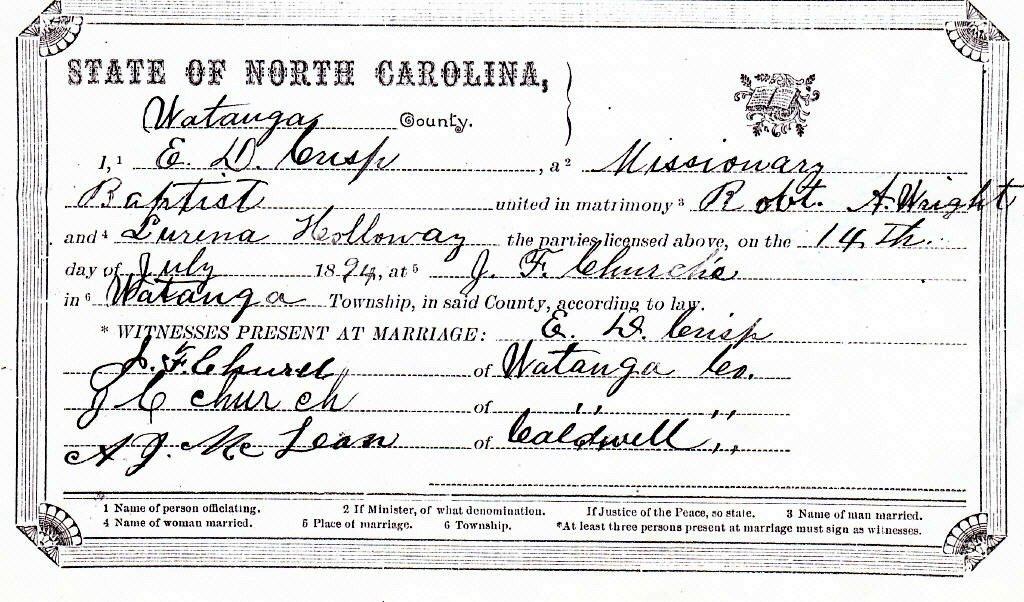 STATE OF NORTH CAROLINA,
Watanga County.
I,1 E. D. Crisp, a2 Missionary
Baptist united in matrimony3 Robt. A. Wright
and4 Lurena Holloway the parties licensed above, on the 14th.
day of July 1894, at5 J. F. Church's
in6 Watanga Township, in said County, according to law.
* WITNESSES PRESENT AT MARRIAGE: E. D. Crisp
J. F. Church of Watanga Co.
J C Church of ,, ,,
A J. McLean of Caldwell ,,
1 Name of person officiating. 2 If Minister, of what denomination. If Justice of the Peace, so state. 3 Name of man married.
4 Name of woman married. 5 Place of marriage. 6 Township. *At least three persons present at marriage must sign as witnesses.